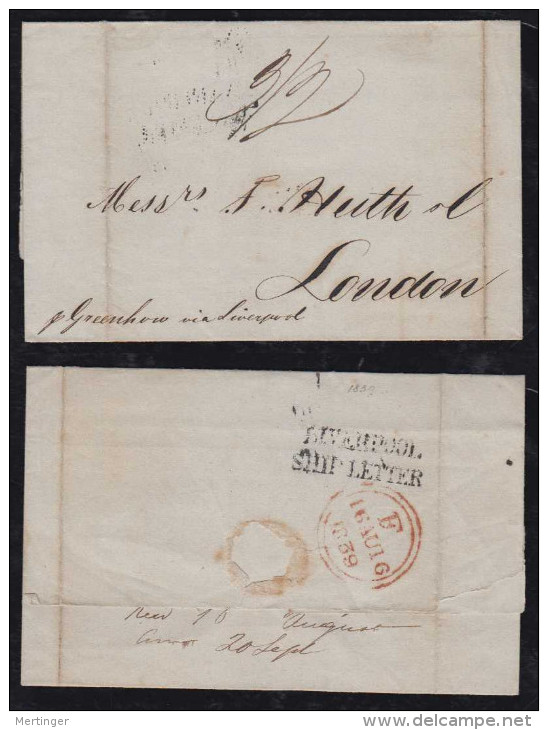 3/2
Messrs F. Huth &
London
p Greenhow via Liverpool
1839
LIVERPOOL
SHIP LETTER
F
16 AU 16
1839
Recd 16 August
20 Sept
Mertinger
delcampe.net